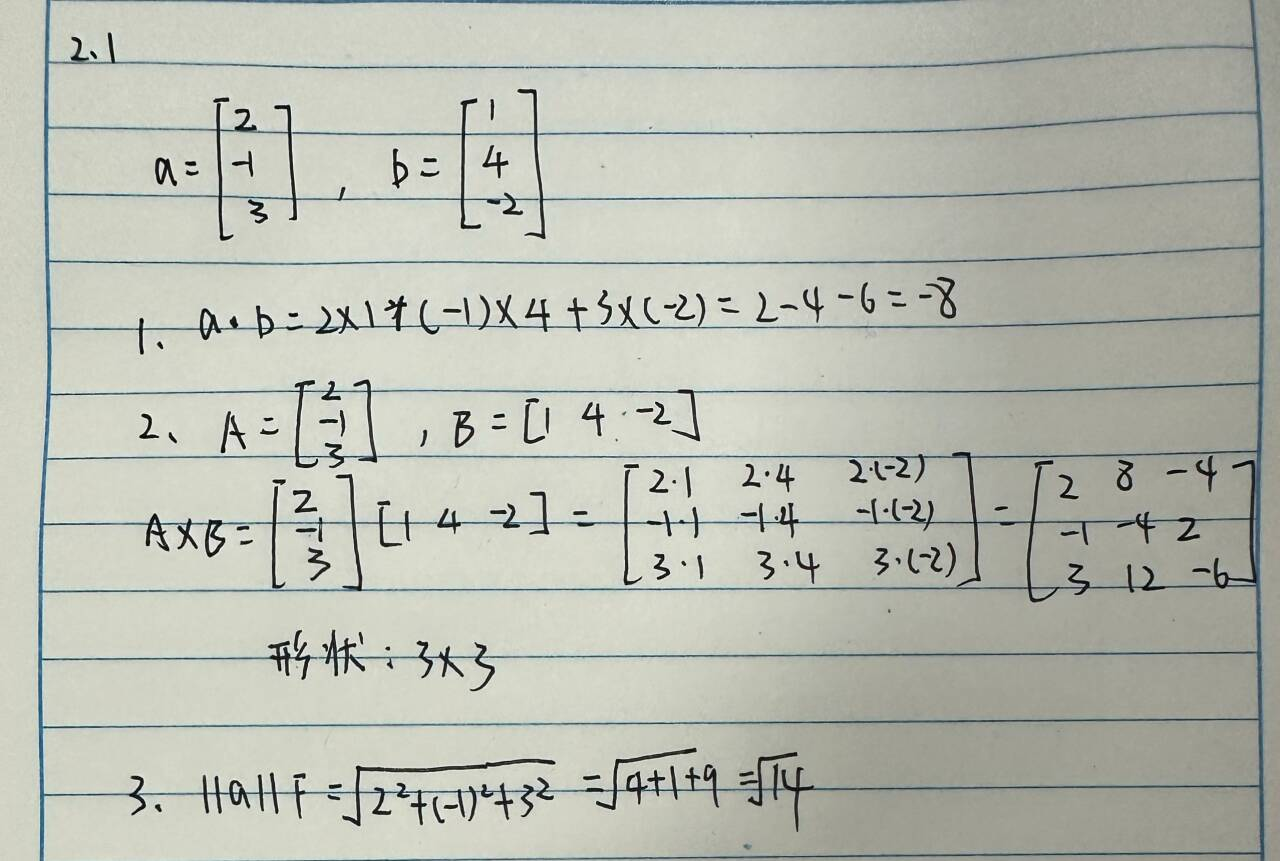 2、1
a = [2 -1 3] , b = [1 4 -2]
1. a·b = 2×1+(-1)×4+3×(-2) = 2-4-6 = -8
2、 A = [2 -1 3] , B = [1 4 -2]
A×B = [2 -1 3] [1 4 -2] = [2·1 2·4 2·(-2) -1·1 -1·4 -1·(-2) 3·1 3·4 3·(-2)] = [2 8 -4 -1 -4 2 3 12 -6]
形状：3×3
3. ||a||F = √2²+(-1)²+3² = √4+1+9 = √14